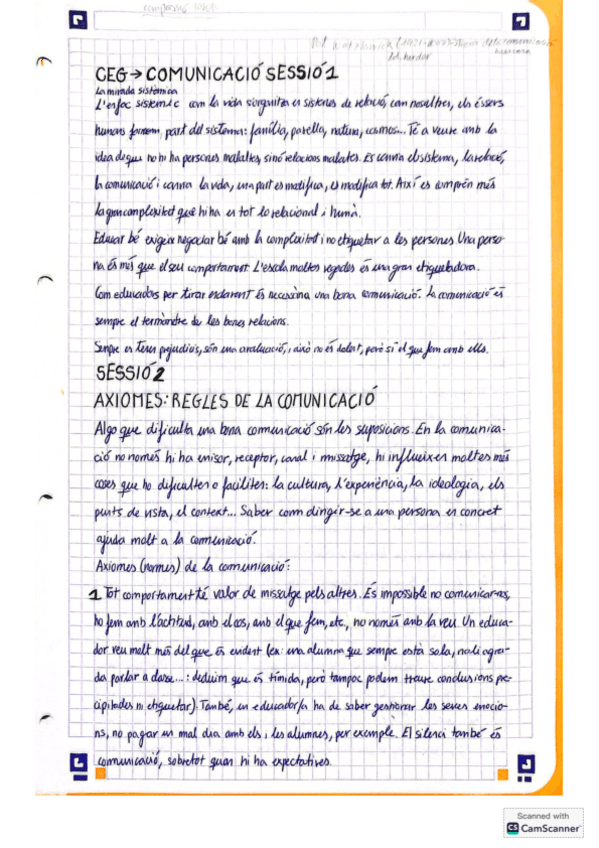 CEG → COMUNICACIÓ SESSIÓ 1
La mirada sistèmica
L'enfoc sistèmic com la vida s'organitza en sistemes de relació, com nosaltres, els éssers
humans formem part del sistema: família, parella, natura, cosmos... Té a veure amb la
idea de que no hi ha persones malaltes, sinó relacions malaltes. Es canvia el sistema, la relació,
la comunicació i canvia la vida, una part es modifica, es modifica tot. Així es comprèn més
la gran complexitat que hi ha en tot lo relacional i humà.
Educar bé exigeix negociar bé amb la complexitat i no etiquetar a les persones. Una perso-
na és més que el seu comportament. L'escola moltes vegades és una gran etiquetadora.
Com educadors per tirar endavant és necessària una bona comunicació. La comunicació és
sempre el termòmetre de les bones relacions.
Sempre es tenen prejudicis, són una avaluació, i això no és dolent, però sí el que fem amb ells.
SESSIÓ 2
AXIOMES: REGLES DE LA COMUNICACIÓ
Algo que dificulta una bona comunicació són les suposicions. En la comunica-
ció no només hi ha emisor, receptor, canal i missatge, hi influeixen moltes més
coses que ho dificulten o faciliten: la cultura, l'experiència, la ideologia, els
punts de vista, el context... Saber com dirigir-se a una persona en concret
ajuda molt a la comunicació.
Axiomes (normes) de la comunicació:
1 Tot comportament té valor de missatge pels altres. És impossible no comunicar-nos,
ho fem amb l'actitud, amb el cos, amb el que fem, etc., no només amb la veu. Un educa-
dor veu molt més del que és evident (ex: una alumna que sempre està sola, no li agra-
da parlar a classe...: deduïm que és tímida, però tampoc podem treure conclusions pre-
cipitades ni etiquetar). També, un educador/a ha de saber gestionar les seves emocio-
ns, no pagar un mal dia amb els i les alumnes, per exemple. El silenci també és
comunicació, sobretot quan hi ha expectatives.
Scanned with
CS CamScanner